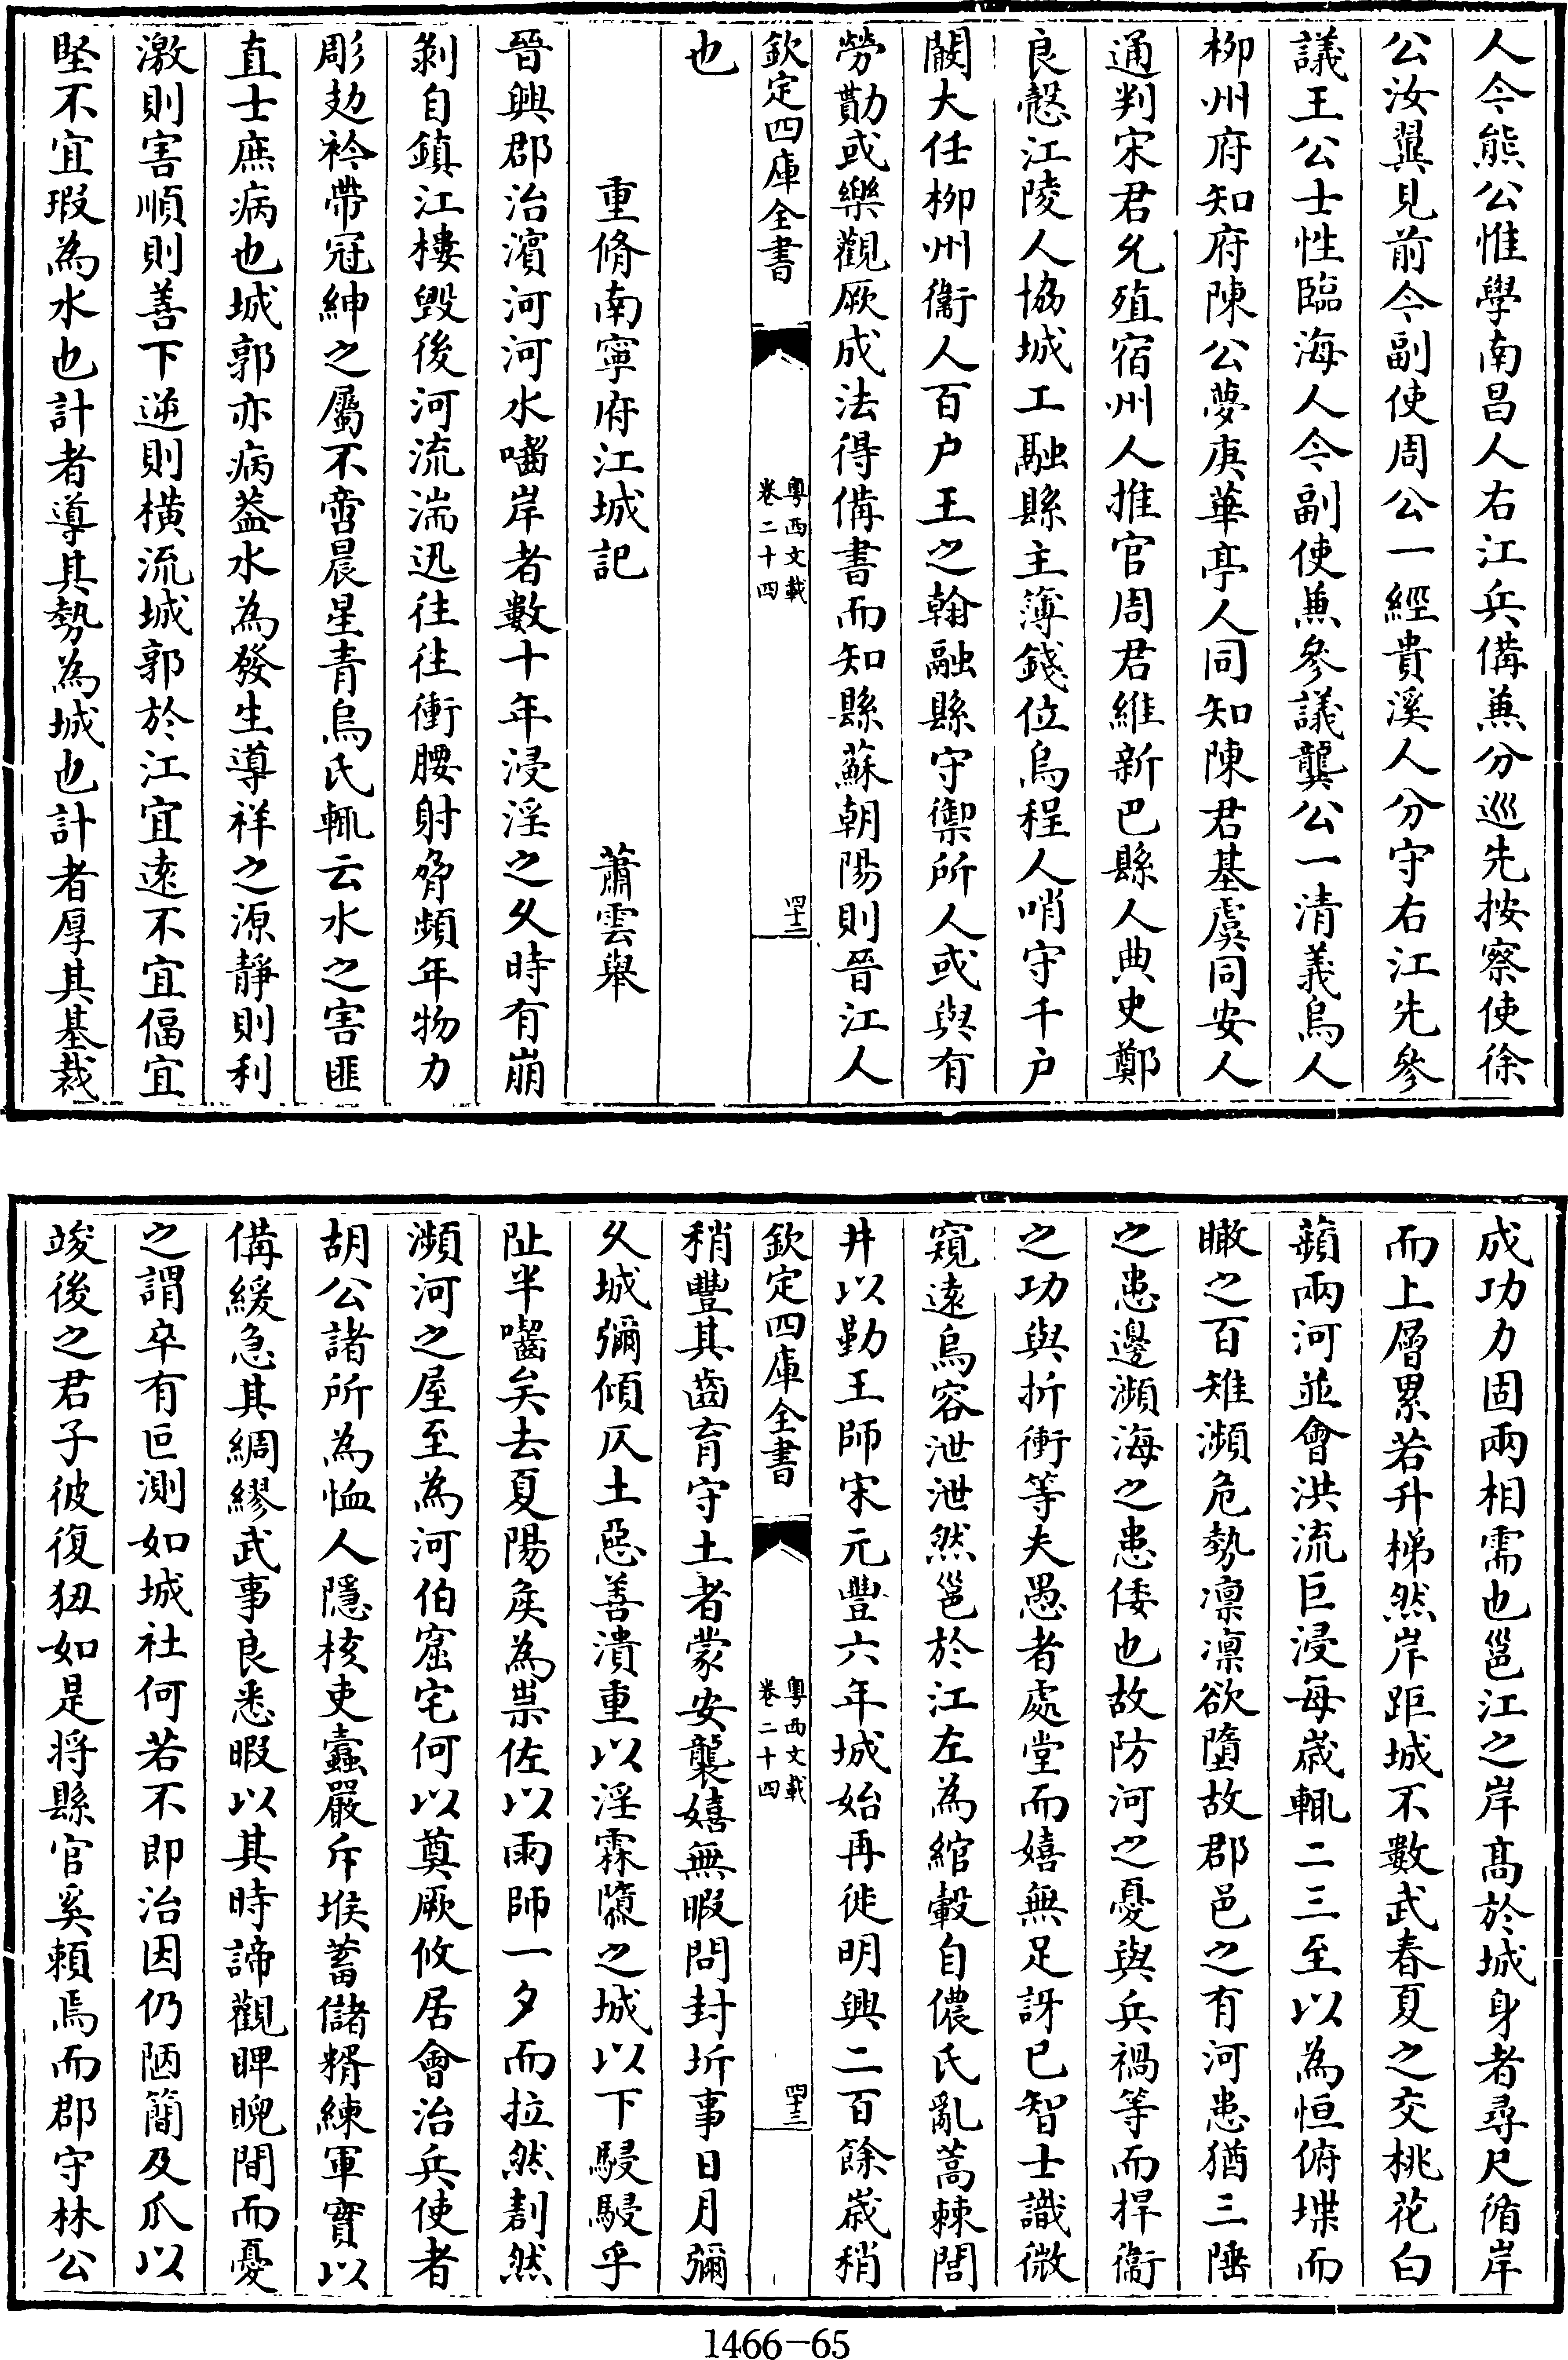 人今熊公惟學南昌人右江兵備兼分巡先按察使徐
公汝翼見前今副使周公一經貴溪人分守右江先參
議王公士性臨海人今副使兼參議龔公一清義烏人
柳州府知府陳公夢庚華亭人同知陳君基虞同安人
通判宋君允殖宿州人推官周君維新巴縣人典史鄭
良慤江陵人協城工融縣主簿錢位烏程人哨守千户
闞大任柳州衞人百户王之翰融縣守禦所人或與有
勞勩或樂觀厥成法得備書而知縣蘇朝陽則晉江人
欽定四庫全書
粤西文載
卷二十四
四十二
也
重脩南寧府江城記
蕭雲舉
晉興郡治濵河河水嚙岸者數十年浸淫之久時有崩
剝自鎮江樓毁後河流湍迅往往衝腰射脅頻年物力
彫攰衿帶冠紳之屬不啻晨星青烏氏輒云水之害匪
直士庶病也城郭亦病葢水為發生導祥之源靜則利
激則害順則善下逆則横流城郭於江宜逺不宜偪宜
堅不宜瑕為水也計者導其勢為城也計者厚其基裁
成功力固兩相需也邕江之岸髙於城身者尋尺循岸
而上層累若升梯然岸距城不數武春夏之交桃花白
蘋兩河並會洪流巨浸每嵗輒二三至以為恒俯堞而
瞰之百雉瀕危勢凛凛欲墮故郡邑之有河患猶三陲
之患邊瀕海之患倭也故防河之憂與兵禍等而捍衞
之功與折衝等夫愚者處堂而嬉無足訝已智士識微
窺逺烏容泄泄然邕於江左為綰轂自儂氏亂蒿棘閭
井以勤王師宋元豐六年城始再徙明興二百餘嵗稍
欽定四庫全書
粤西文載
卷二十四
四十三
稍豐其齒育守土者蒙安襲嬉無暇問封圻事日月彌
久城彌傾仄土惡善潰重以淫霖隳之城以下駸駸乎
阯半嚙矣去夏陽侯為祟佐以雨師一夕而拉然劃然
瀕河之屋至為河伯窟宅何以奠厥攸居會治兵使者
胡公諸所為恤人隱核吏蠹嚴斥堠蓄儲糈練軍實以
備緩急其綢繆武事良悉暇以其時諦觀睥睨間而憂
之謂卒有叵測如城社何若不即治因仍陋簡及瓜以
竣後之君子彼復狃如是将縣官奚頼焉而郡守林公
1466-65